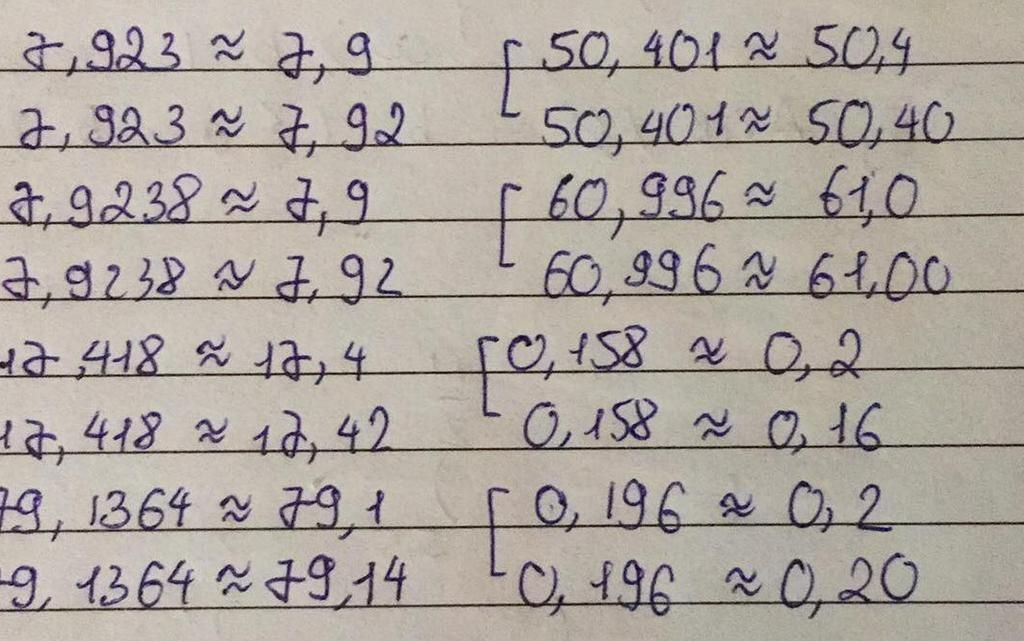 7,923 ≈ 7,9
7,923 ≈ 7,92
7,9238 ≈ 7,9
7,9238 ≈ 7,92
17,418 ≈ 17,4
17,418 ≈ 17,42
79,1364 ≈ 79,1
79,1364 ≈ 79,14
50,401 ≈ 50,4
50,401 ≈ 50,40
60,996 ≈ 61,0
60,996 ≈ 61,00
0,158 ≈ 0,2
0,158 ≈ 0,16
0,196 ≈ 0,2
0,196 ≈ 0,20